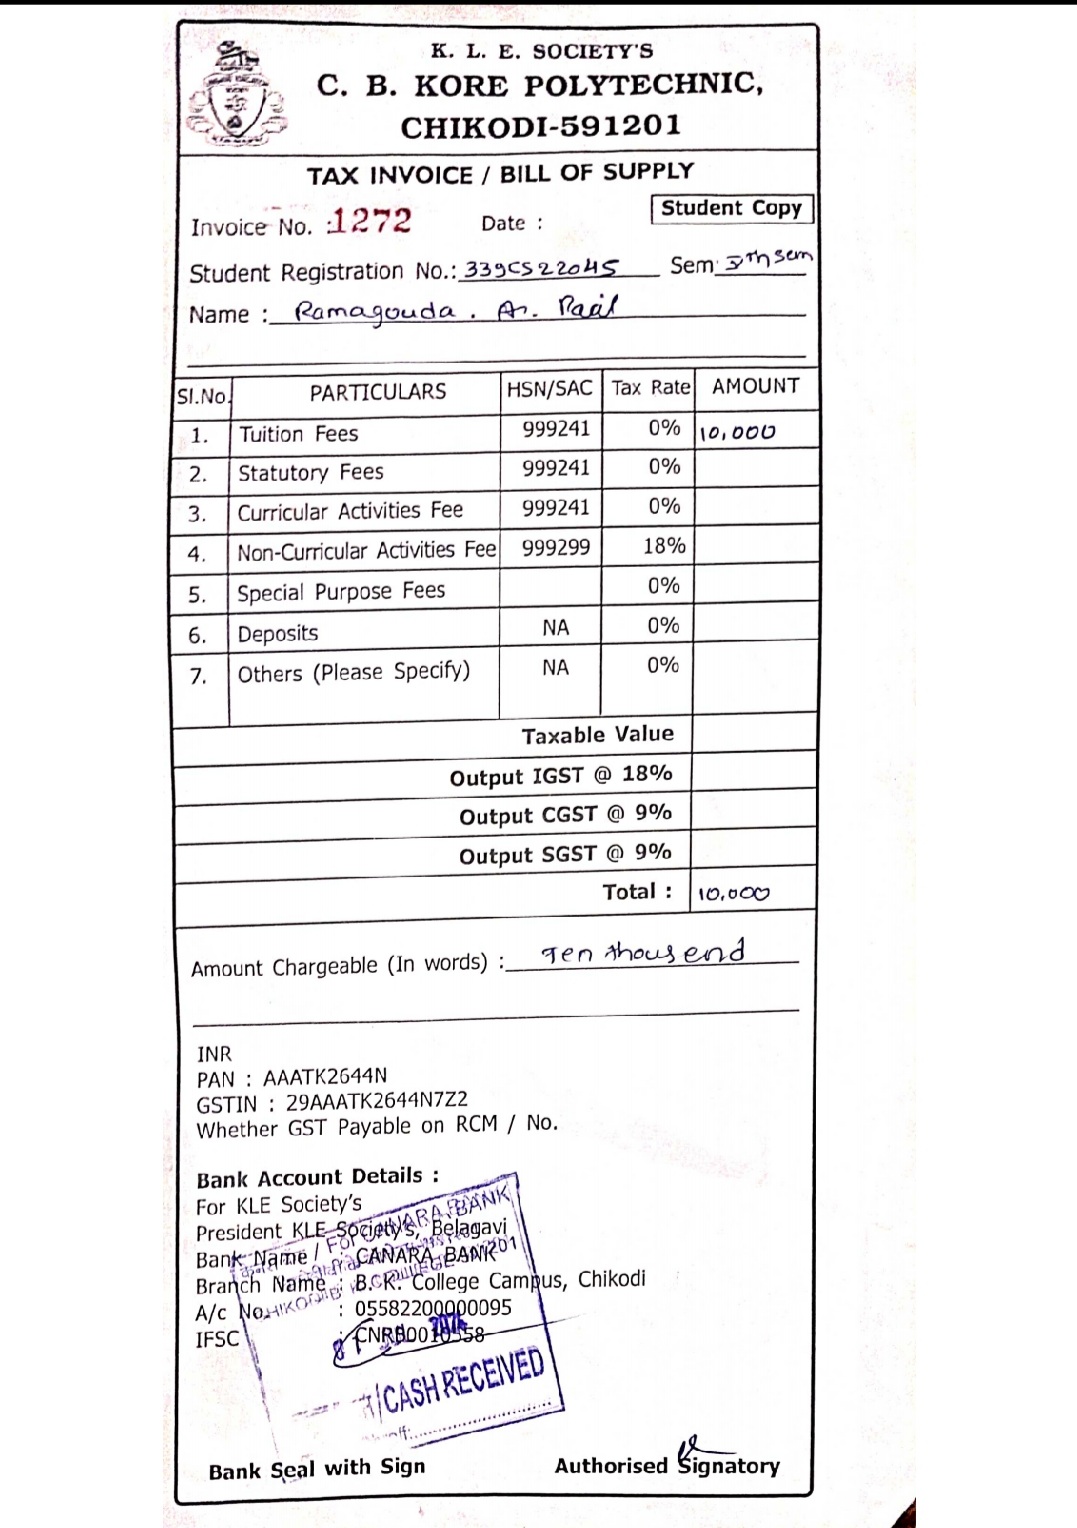 K. L. E. SOCIETY'S
C. B. KORE POLYTECHNIC,
CHIKODI-591201
TAX INVOICE / BILL OF SUPPLY
Student Copy
Invoice No. :1272 Date :
Student Registration No.: 339CS22045 Sem: Vth sem
Name : Ramagouda . A.
Sl.No. PARTICULARS HSN/SAC Tax Rate AMOUNT
1. Tuition Fees 999241 0% 10,000
2. Statutory Fees 999241 0%
3. Curricular Activities Fee 999241 0%
4. Non-Curricular Activities Fee 999299 18%
5. Special Purpose Fees 0%
6. Deposits NA 0%
7. Others (Please Specify) NA 0%
Taxable Value
Output IGST @ 18%
Output CGST @ 9%
Output SGST @ 9%
Total : 10,000
Amount Chargeable (In words) : Ten thousend
INR
PAN : AAATK2644N
GSTIN : 29AAATK2644N7Z2
Whether GST Payable on RCM / No.
Bank Account Details :
For KLE Society's
President KLE Society's, Belagavi
Bank Name : CANARA BANK
Branch Name : B.C.K. College Campus, Chikodi
A/c No. : 05582200000095
IFSC : CNRB0010558
For CANARA BANK
CASH RECEIVED
Bank Seal with Sign Authorised Signatory